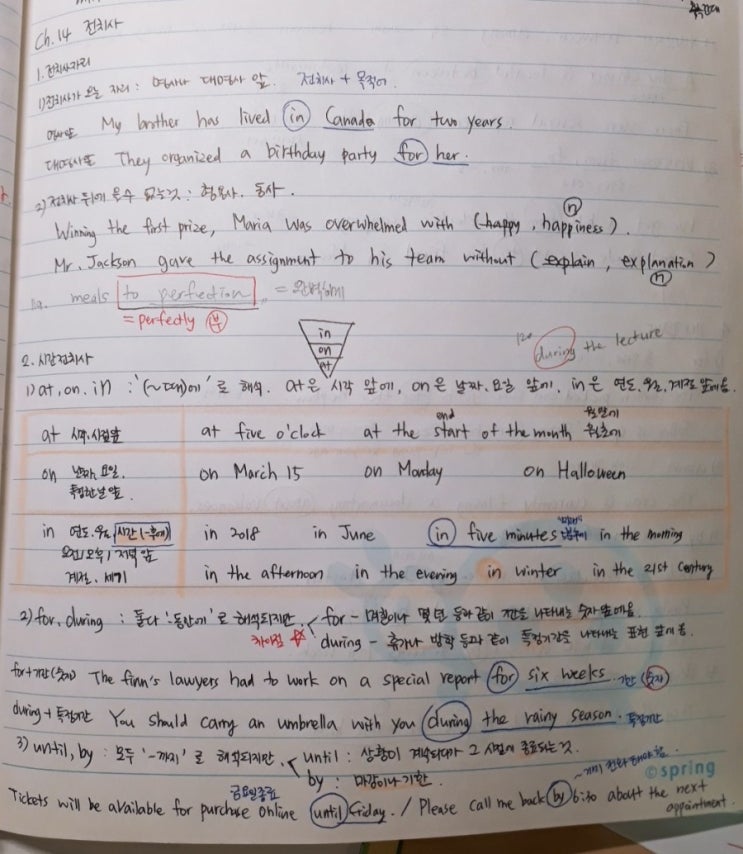 Ch.14 전치사
1. 전치사자리
1) 전치사가 오는 자리 : 명사나 대명사 앞. 전치사 + 목적어.
명사앞 My brother has lived in Canada for two years.
대명사앞 They organized a birthday party for her.
2) 전치사 뒤에 올수 없는것 : 형용사. 동사.
Winning the first prize, Maria was overwhelmed with (happy, happiness). n
Mr. Jackson gave the assignment to his team without (explain, explanation) n
meals to perfection = 완벽하게
= perfectly 부
in
on
at
during the lecture
2. 시간전치사
1) at, on, in : '(~때)에'로 해석. at은 시각 앞에, on은 날짜.요일 앞에. in은 연도.월.계절 앞에옴.
at 시각.시점앞 at five o'clock at the start of the month 월초에
end 월말에
on 날짜.요일. 특정한날 앞. on March 15 on Monday on Halloween
in 연도.월.시간(~후에) in 2018 in June in five minutes in the morning
오전/오후/저녁 앞
계절. 세기 in the afternoon in the evening in winter in the 21st century
2) for, during : 둘다 '동안에'로 해석되지만, for - 며칠이나 몇 년 등과 같이 기간을 나타내는 숫자 앞에옴.
차이점 during - 휴가나 방학 등과 같이 특정기간을 나타내는 표현 앞에 옴.
for+기간(숫자) The firm's lawyers had to work on a special report for six weeks. 기간 (숫자)
during + 특정기간 You should carry an umbrella with you during the rainy season. 특정기간
3) until, by : 모두 '~까지'로 해석되지만. until : 상황이 계속되다가 그 시점에 종료되는 것.
by : 마감이나 기한.
금요일종료 ~까지 전화해야 함.
©spring
Tickets will be available for purchase online until Friday. / Please call me back by 6:10 about the next appointment.